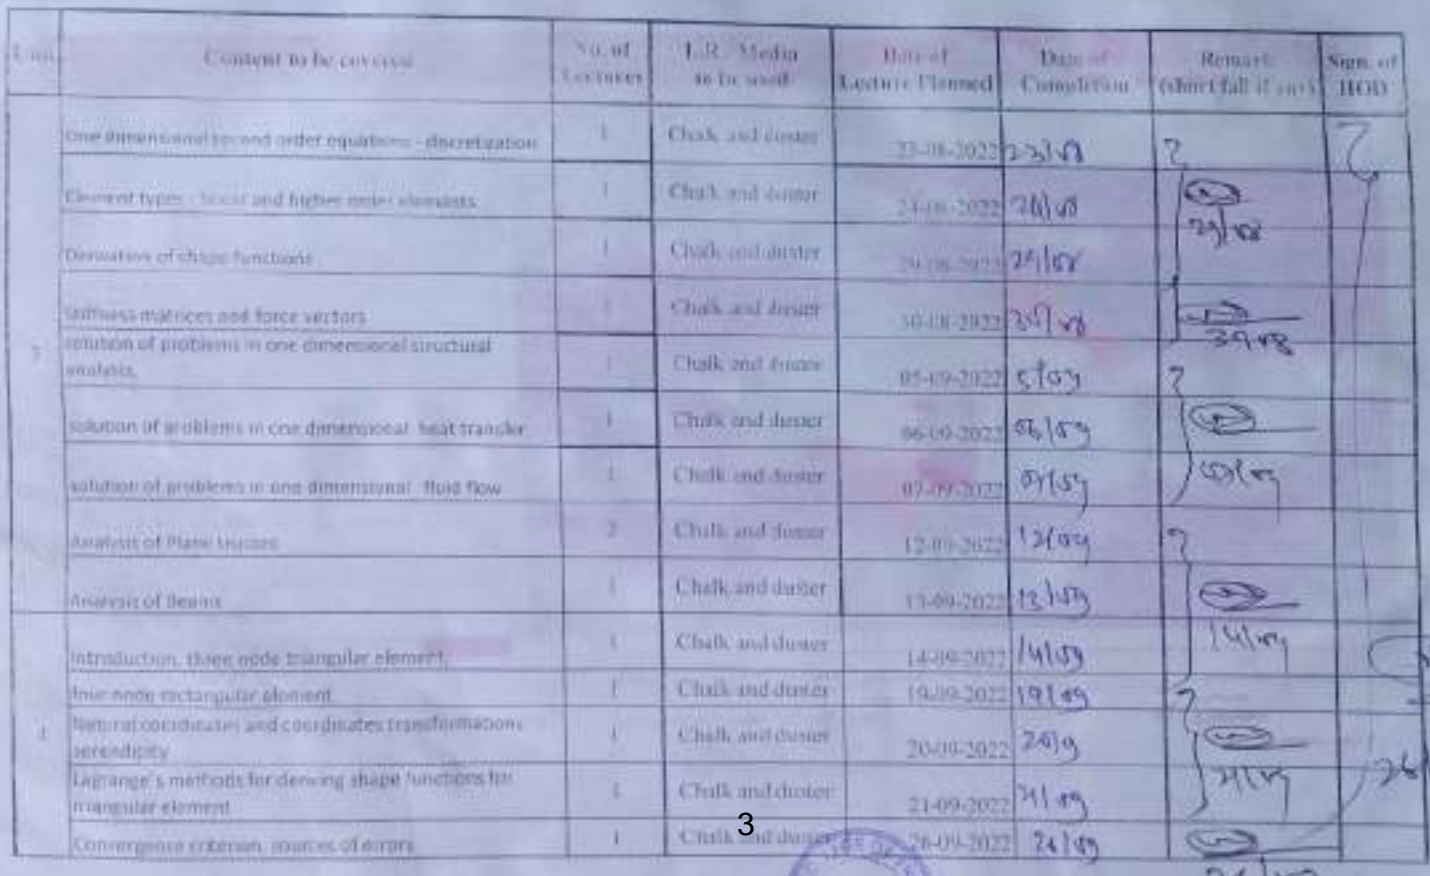 Content to be covered No. of Lectures T.R. / Media to be used Date of Lecture Planned Date of Completion Remark (short fall if any) Sign. of HOD
One dimensional second order equations - discretization 1 Chalk and duster 23-08-2022 23/08
Element types - linear and higher order elements 1 Chalk and duster 24-08-2022 24/08
29/08
Derivation of shape functions 1 Chalk and duster 29-08-2022 29/08
Stiffness matrices and force vectors 1 Chalk and duster 30-08-2022 30/08
30/08
3 solution of problems in one dimensional structural
analysis, 1 Chalk and duster 05-09-2022 5/09
solution of problems in one dimensional heat transfer 1 Chalk and duster 06-09-2022 06/09
solution of problems in one dimensional fluid flow 1 Chalk and duster 07-09-2022 07/09
07/09
Analysis of Plane trusses 2 Chalk and duster 12-09-2022 12/09
Analysis of Beams 1 Chalk and duster 13-09-2022 13/09
Introduction, three node triangular element, 1 Chalk and duster 14-09-2022 14/09
14/09
four node rectangular element 1 Chalk and duster 19-09-2022 19/09
4 Natural coordinates and coordinates transformations
serendipity 1 Chalk and duster 20-09-2022 20/9
Lagrange's methods for deriving shape functions for
triangular element 1 Chalk and duster 21-09-2022 21/09
21/09
Convergence criterion, sources of errors 1 Chalk and duster 26-09-2022 26/09
3